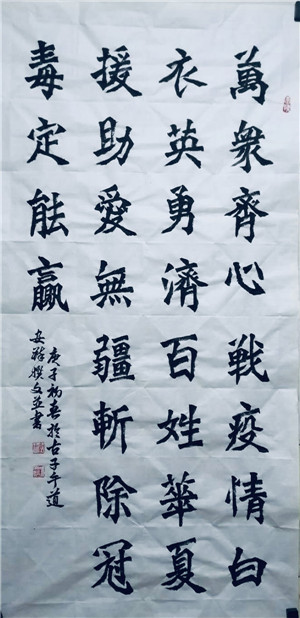 萬衆齊心戰疫情白
衣英勇濟百姓華夏
援助愛無疆斬除冠
毒定能贏
庚子初春於古子午道
安辭撰文並書